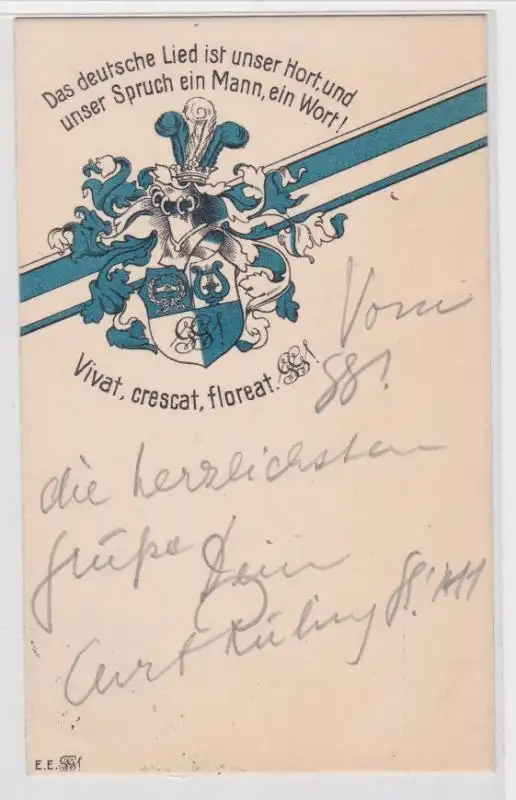 Das deutsche Lied ist unser Hort, und
unser Spruch ein Mann, ein Wort!
Vivat, crescat, floreat.
Vom
die herzlichsten
Grüße!
Dein
Curt
E.E.